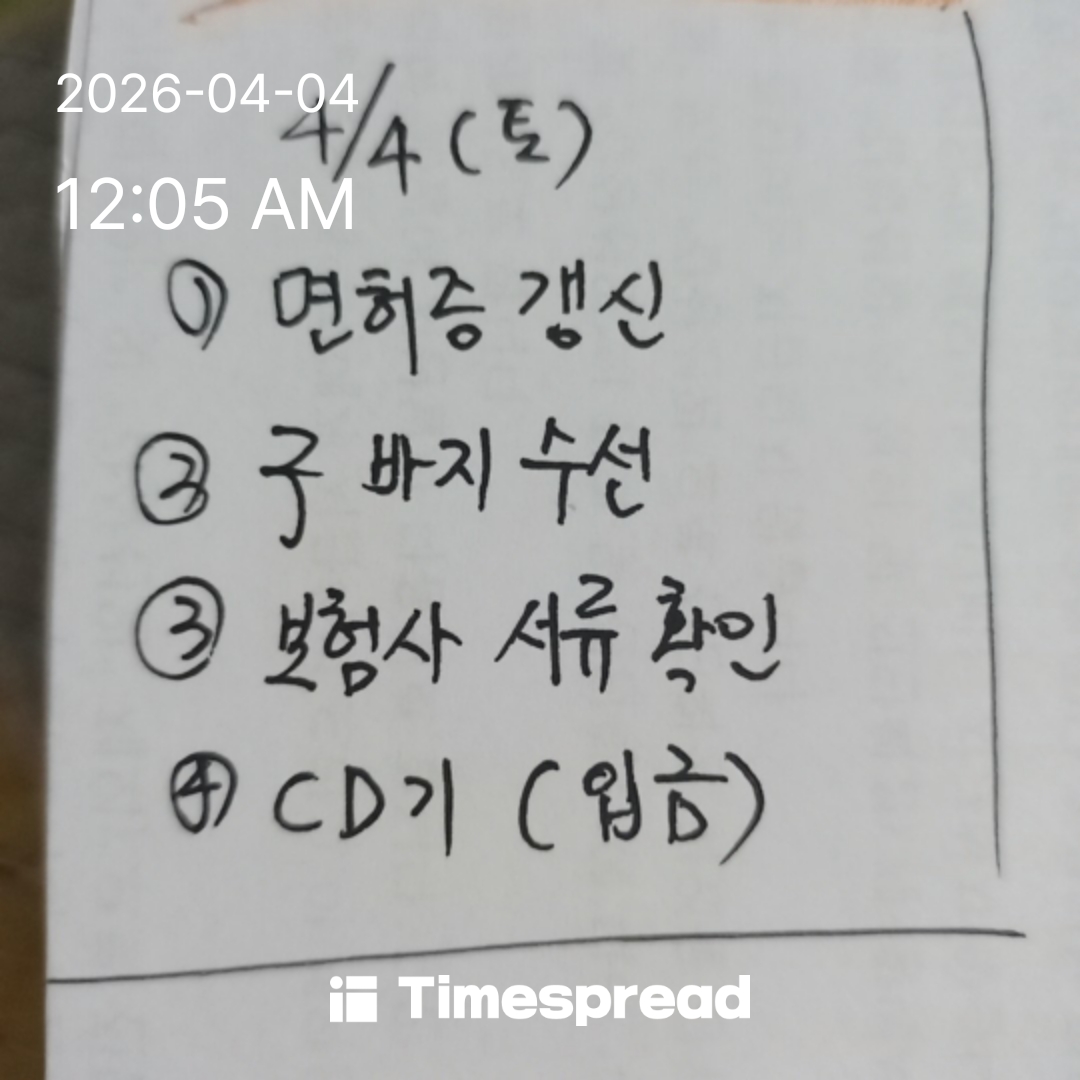 2026-04-04
4/4 (토)
12:05 AM
① 면허증 갱신
② 구 바지 수선
③ 보험사 서류 확인
④ CD기 (입금)
Timespread